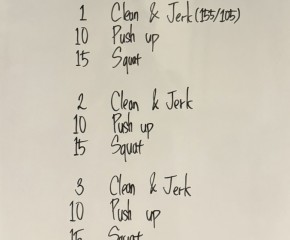 1 Clean & Jerk (155/105)
10 Push up
15 Squat
2 Clean & Jerk
10 Push up
15 Squat
3 Clean & Jerk
10 Push up
15 Squat